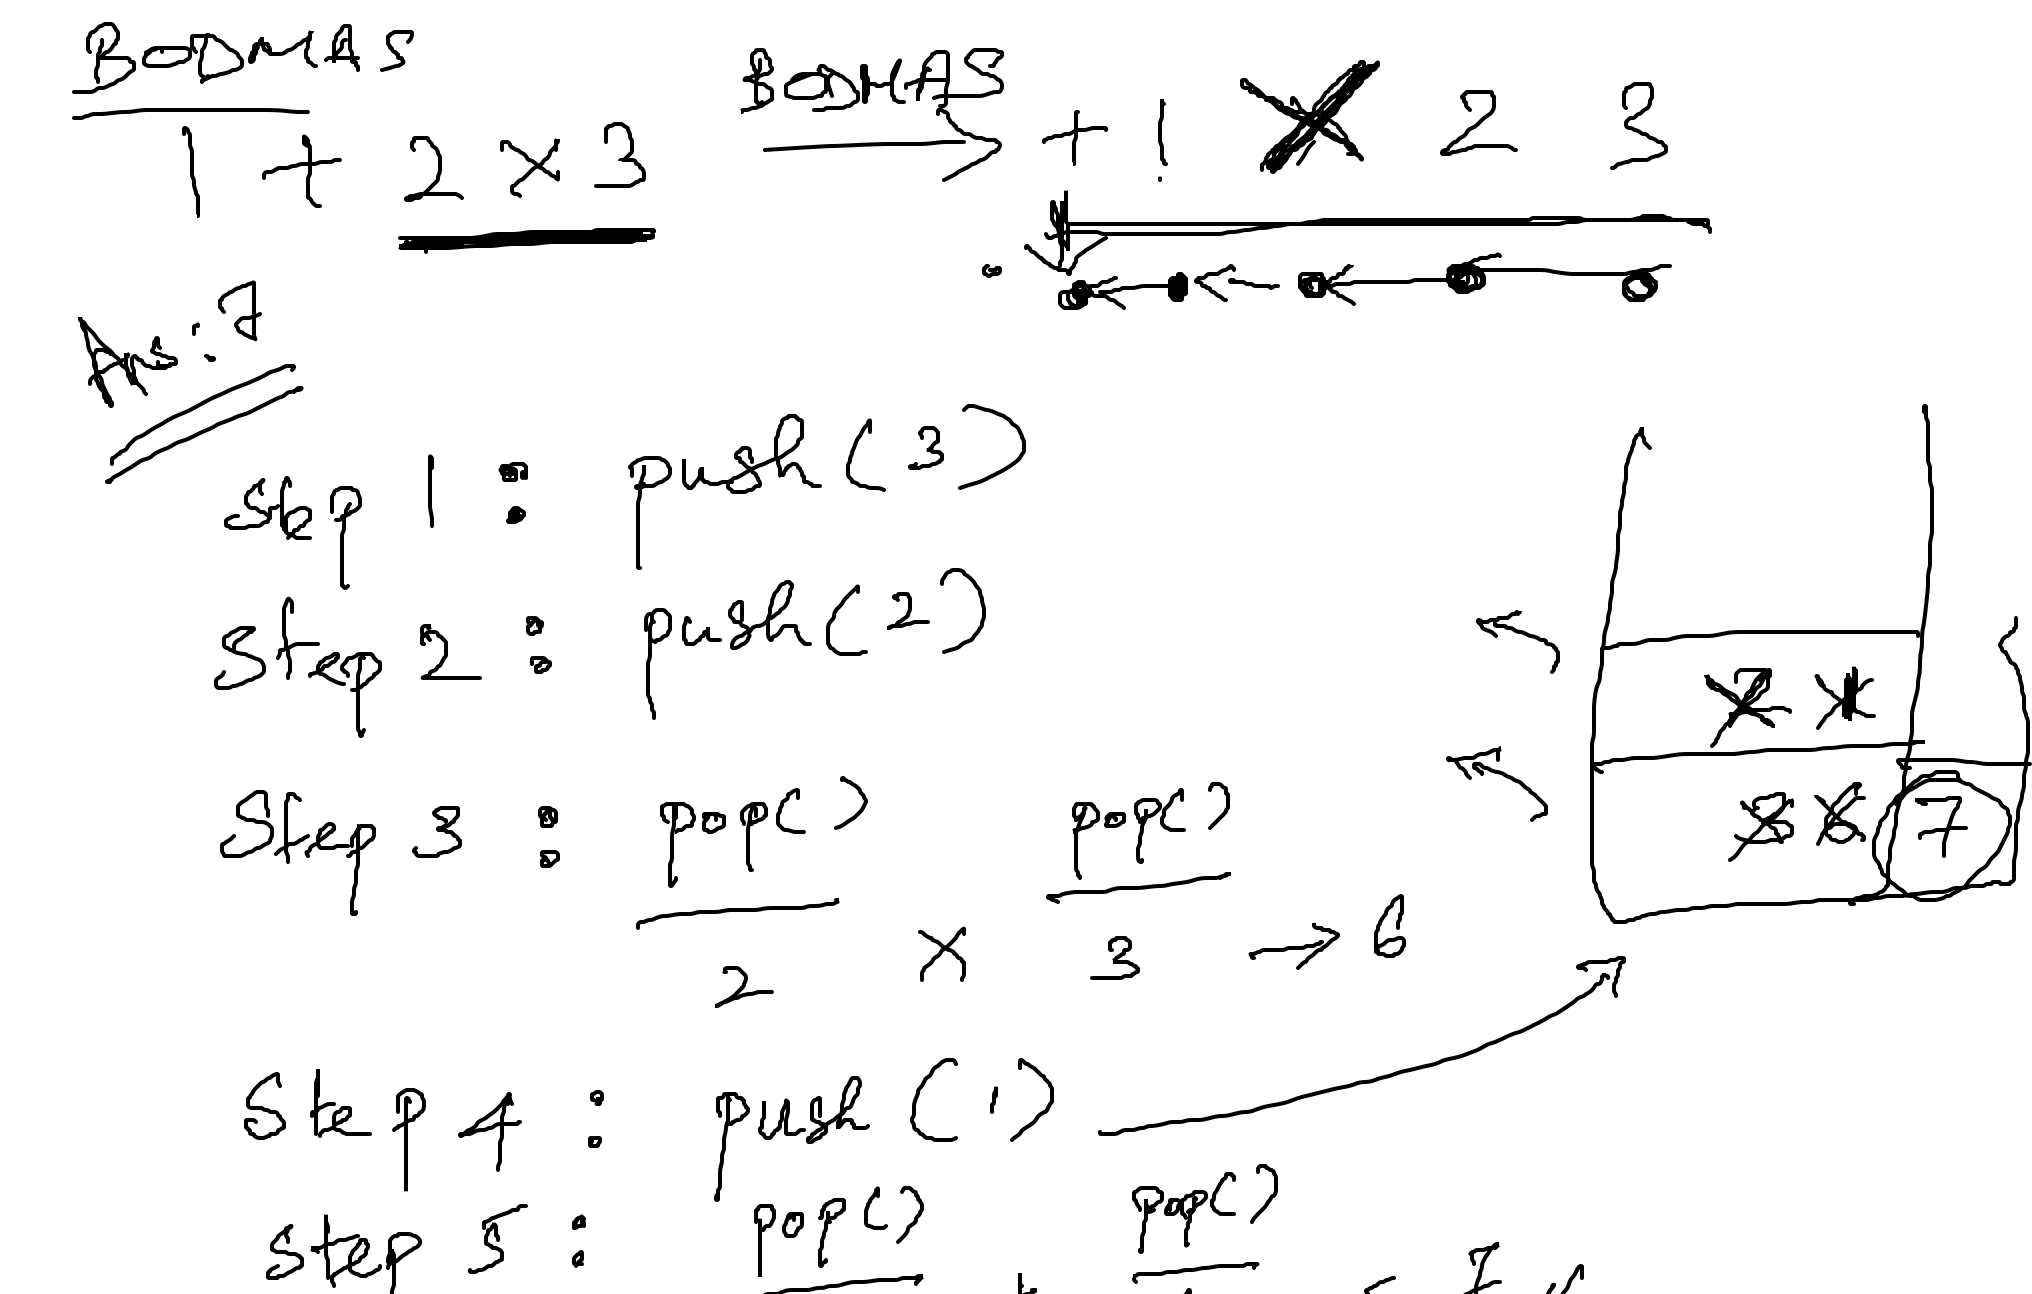 BODMAS
BODMAS
1 + 2 × 3
+ 1 × 2 3
Ans: 7
Step 1 : push(3)
Step 2 : push(2)
2 1
Step 3 : pop() pop()
3 6 7
2 × 3 → 6
Step 4 : push(1)
Step 5 : pop() pop()
7